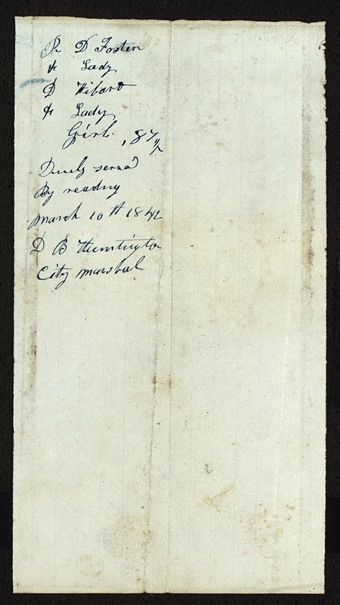 R D Foster
& Lady
D Hibard
& Lady
Girl. ,87 1/2
Duely served
By reading
March 10th 1842
D B Huntington
City Marshal